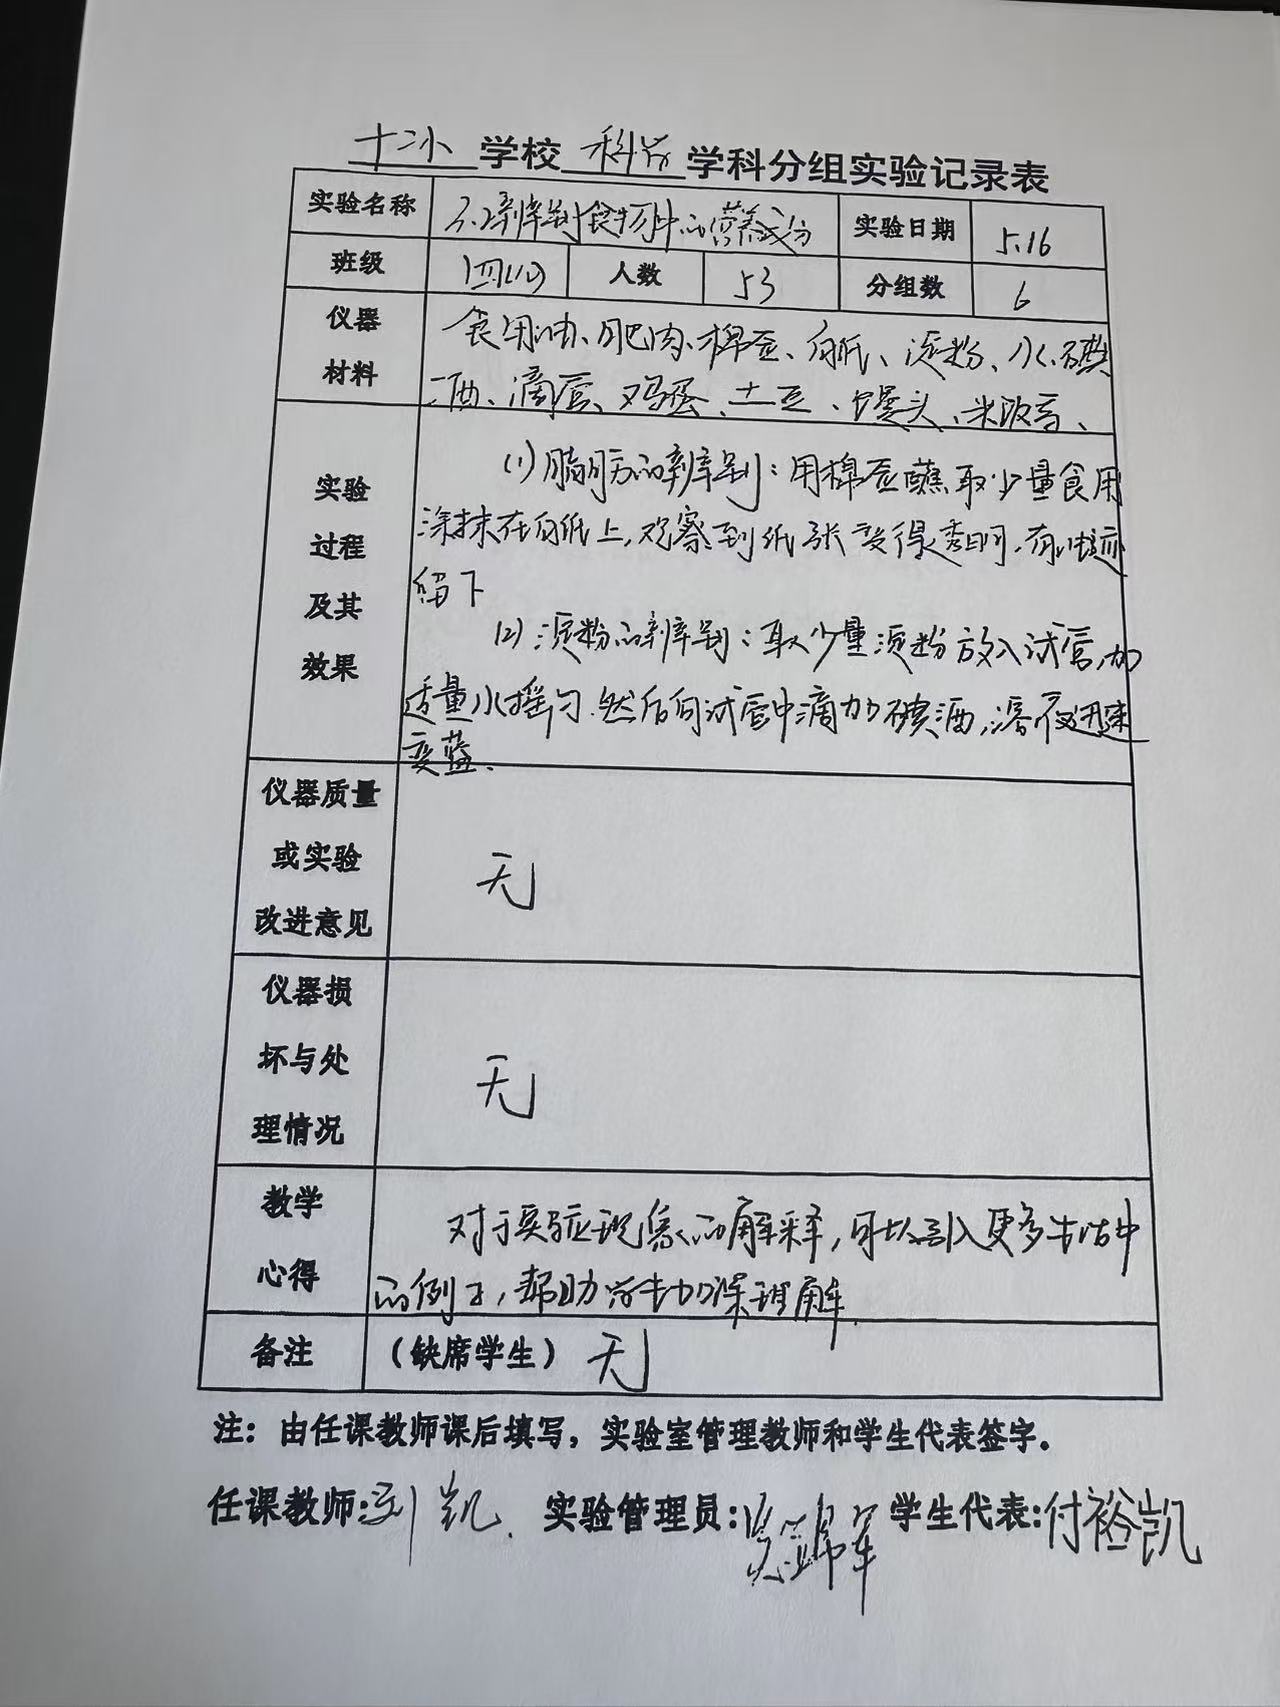 十二小学校科学学科分组实验记录表
实验名称 3.2辨别食物中的营养成分 实验日期 5.16
班级 四(1) 人数 53 分组数 6
仪器材料 食用油、肥肉、棉签、白纸、淀粉、水、碘
酒、滴管、鸡蛋、土豆、馒头、米饭等、
实验过程及其效果 (1)脂肪的辨别:用棉签蘸取少量食用
涂抹在白纸上,观察到纸张变得透明,有油迹
留下
(2)淀粉的辨别:取少量淀粉放入试管,加
适量水摇匀.然后向试管中滴加碘酒,溶液迅速
变蓝、
仪器质量或实验改进意见 无
仪器损坏与处理情况 无
教学心得 对于实验现象的解释,可以引入更多生活中
的例子,帮助学生加深理解.
备注 (缺席学生) 无
注:由任课教师课后填写,实验室管理教师和学生代表签字。
任课教师:刘凯. 实验管理员: 学生代表:付裕凯